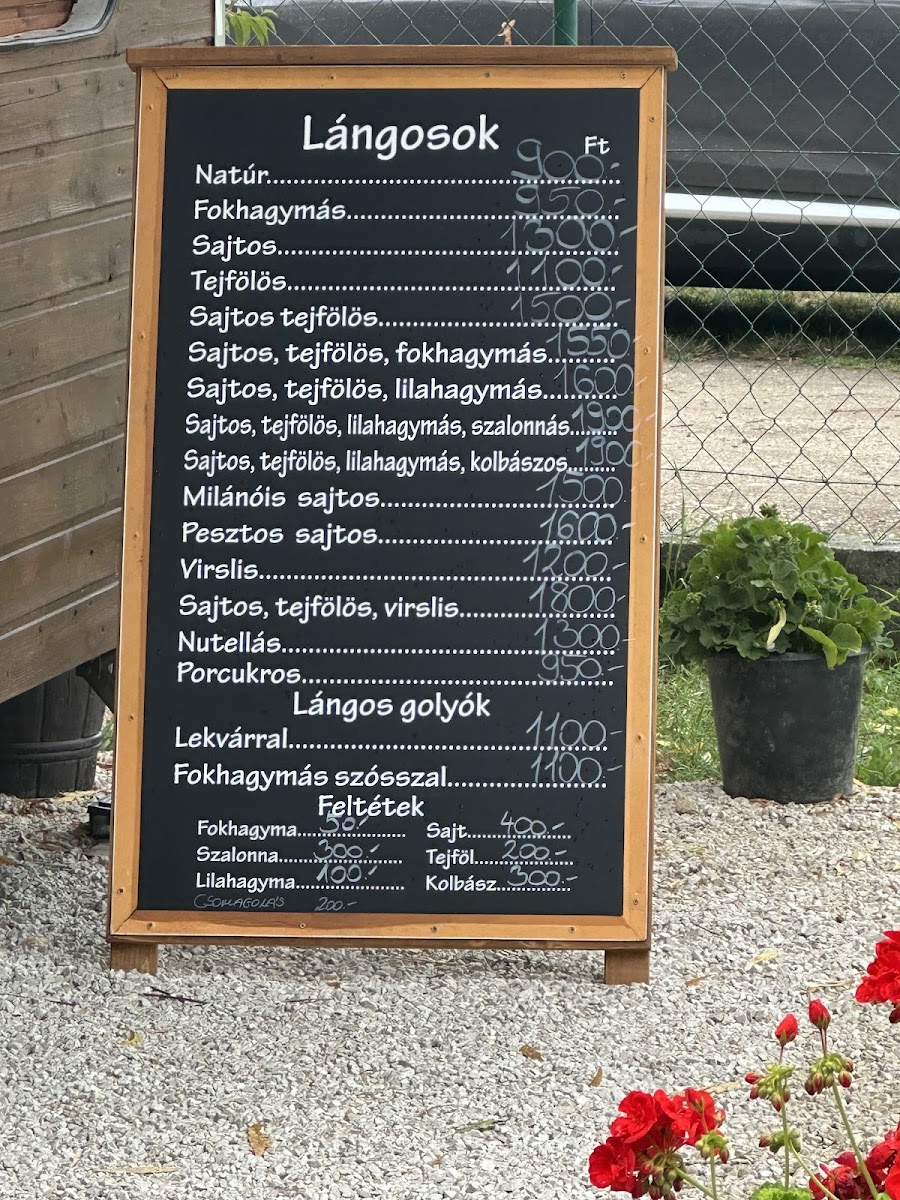 Lángosok
Ft
Natúr..........900.-
Fokhagymás..........950.-
Sajtos..........1300.-
Tejfölös..........1100.-
Sajtos tejfölös..........1500.-
Sajtos, tejfölös, fokhagymás..........1550.-
Sajtos, tejfölös, lilahagymás..........1600.-
Sajtos, tejfölös, lilahagymás, szalonnás..........1900.-
Sajtos, tejfölös, lilahagymás, kolbászos..........1900.-
Milánóis sajtos..........1500.-
Pesztos sajtos..........1600.-
Virslis..........1200.-
Sajtos, tejfölös, virslis..........1800.-
Nutellás..........1300.-
Porcukros..........950.-
Lángos golyók
Lekvárral..........1100.-
Fokhagymás szósszal..........1100.-
Feltétek
Fokhagyma..........50.- Sajt..........400.-
Szalonna..........300.- Tejföl..........200.-
Lilahagyma..........100.- Kolbász..........300.-
CSOMAGOLÁS 200.-